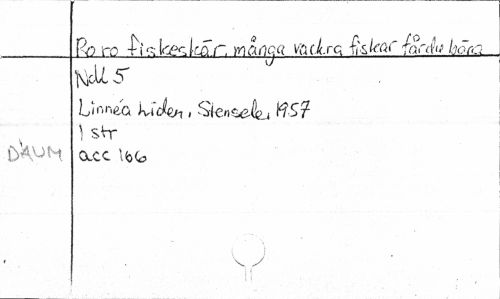 Ro ro fiskeskär, många vackra fiskar får du höra
Ndl 5
Linnéa Lidén, Stensele, 1957
1 str
DAUM acc 166